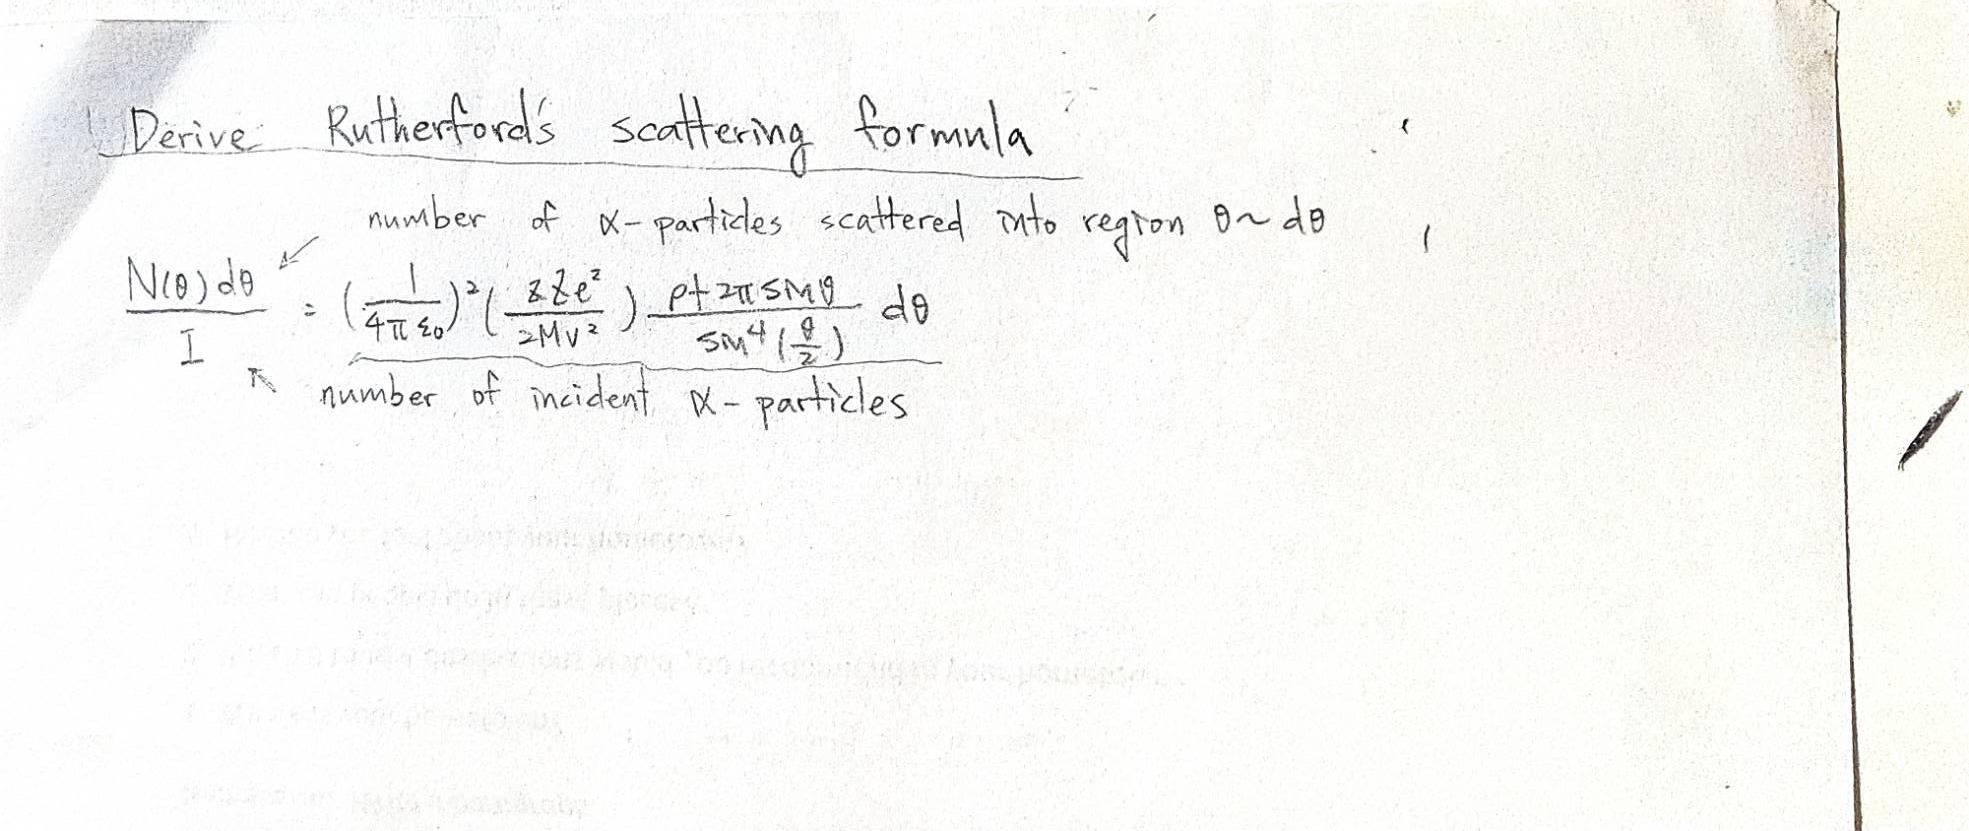 Derive Rutherford's scattering formula
number of α-particles scattered into region θ~dθ
N(θ)dθ / I = (1/4πε₀)² (zZe²/2Mv²) ρt 2π sinθ / sin⁴(θ/2) dθ
number of incident α-particles